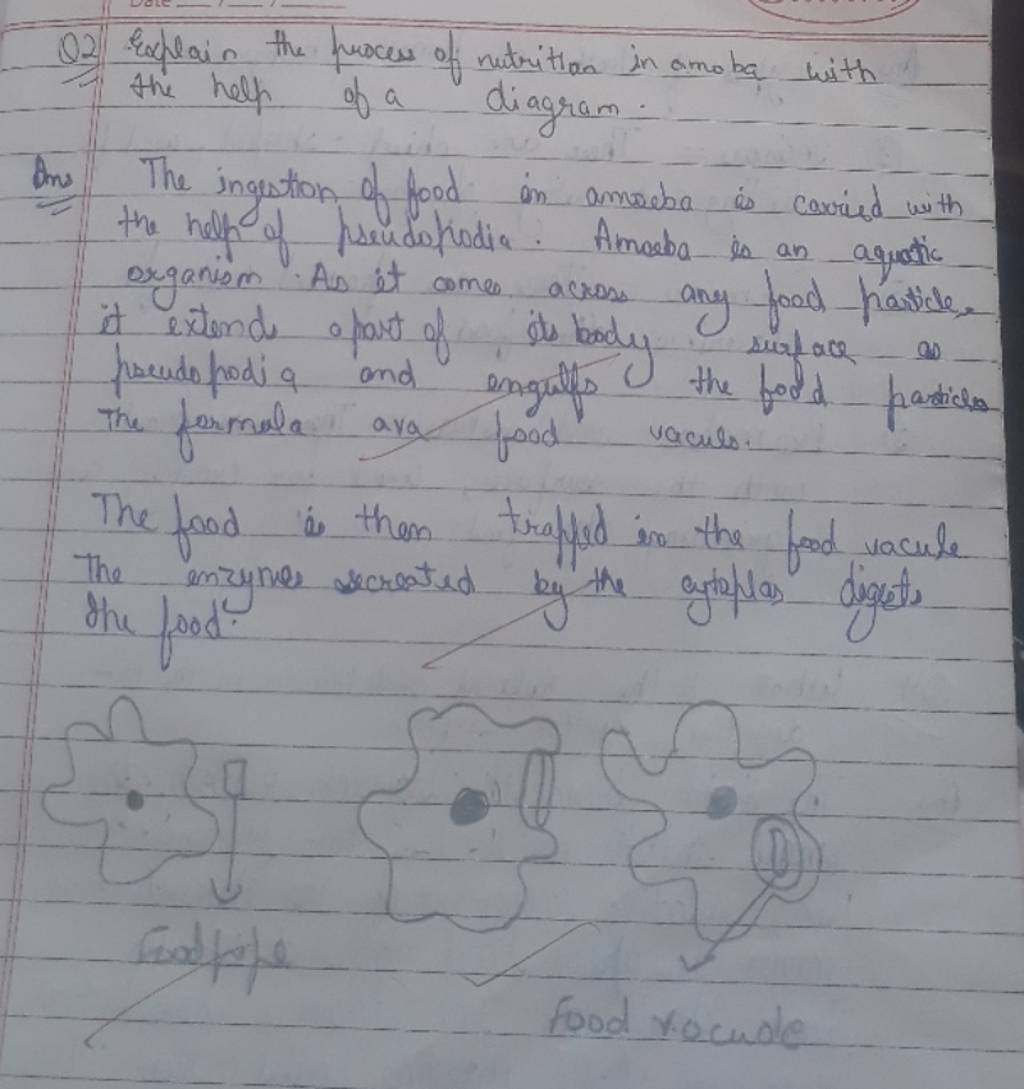 Date
Q2 Explain the process of nutrition in amoba with
the help of a diagram.
Ans The ingestion of food in amoeba is carried with
the help of pseudopodia. Amoeba is an aquatic
organism. As it comes across any food particle,
it extends a part of its body surface as
pseudopodia and engulfs the food particles
The formala ava food vacule.
The food is then trapped in the food vacule
The enzymes secreated by the cytoplas digests
the food.
Food
Food vacuole